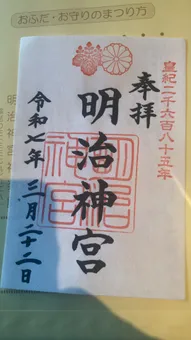 おふだ・お守りのまつり方
皇紀二千六百八十五年
奉拝
明治神宮
明治神宮
令和七年 三月二十二日